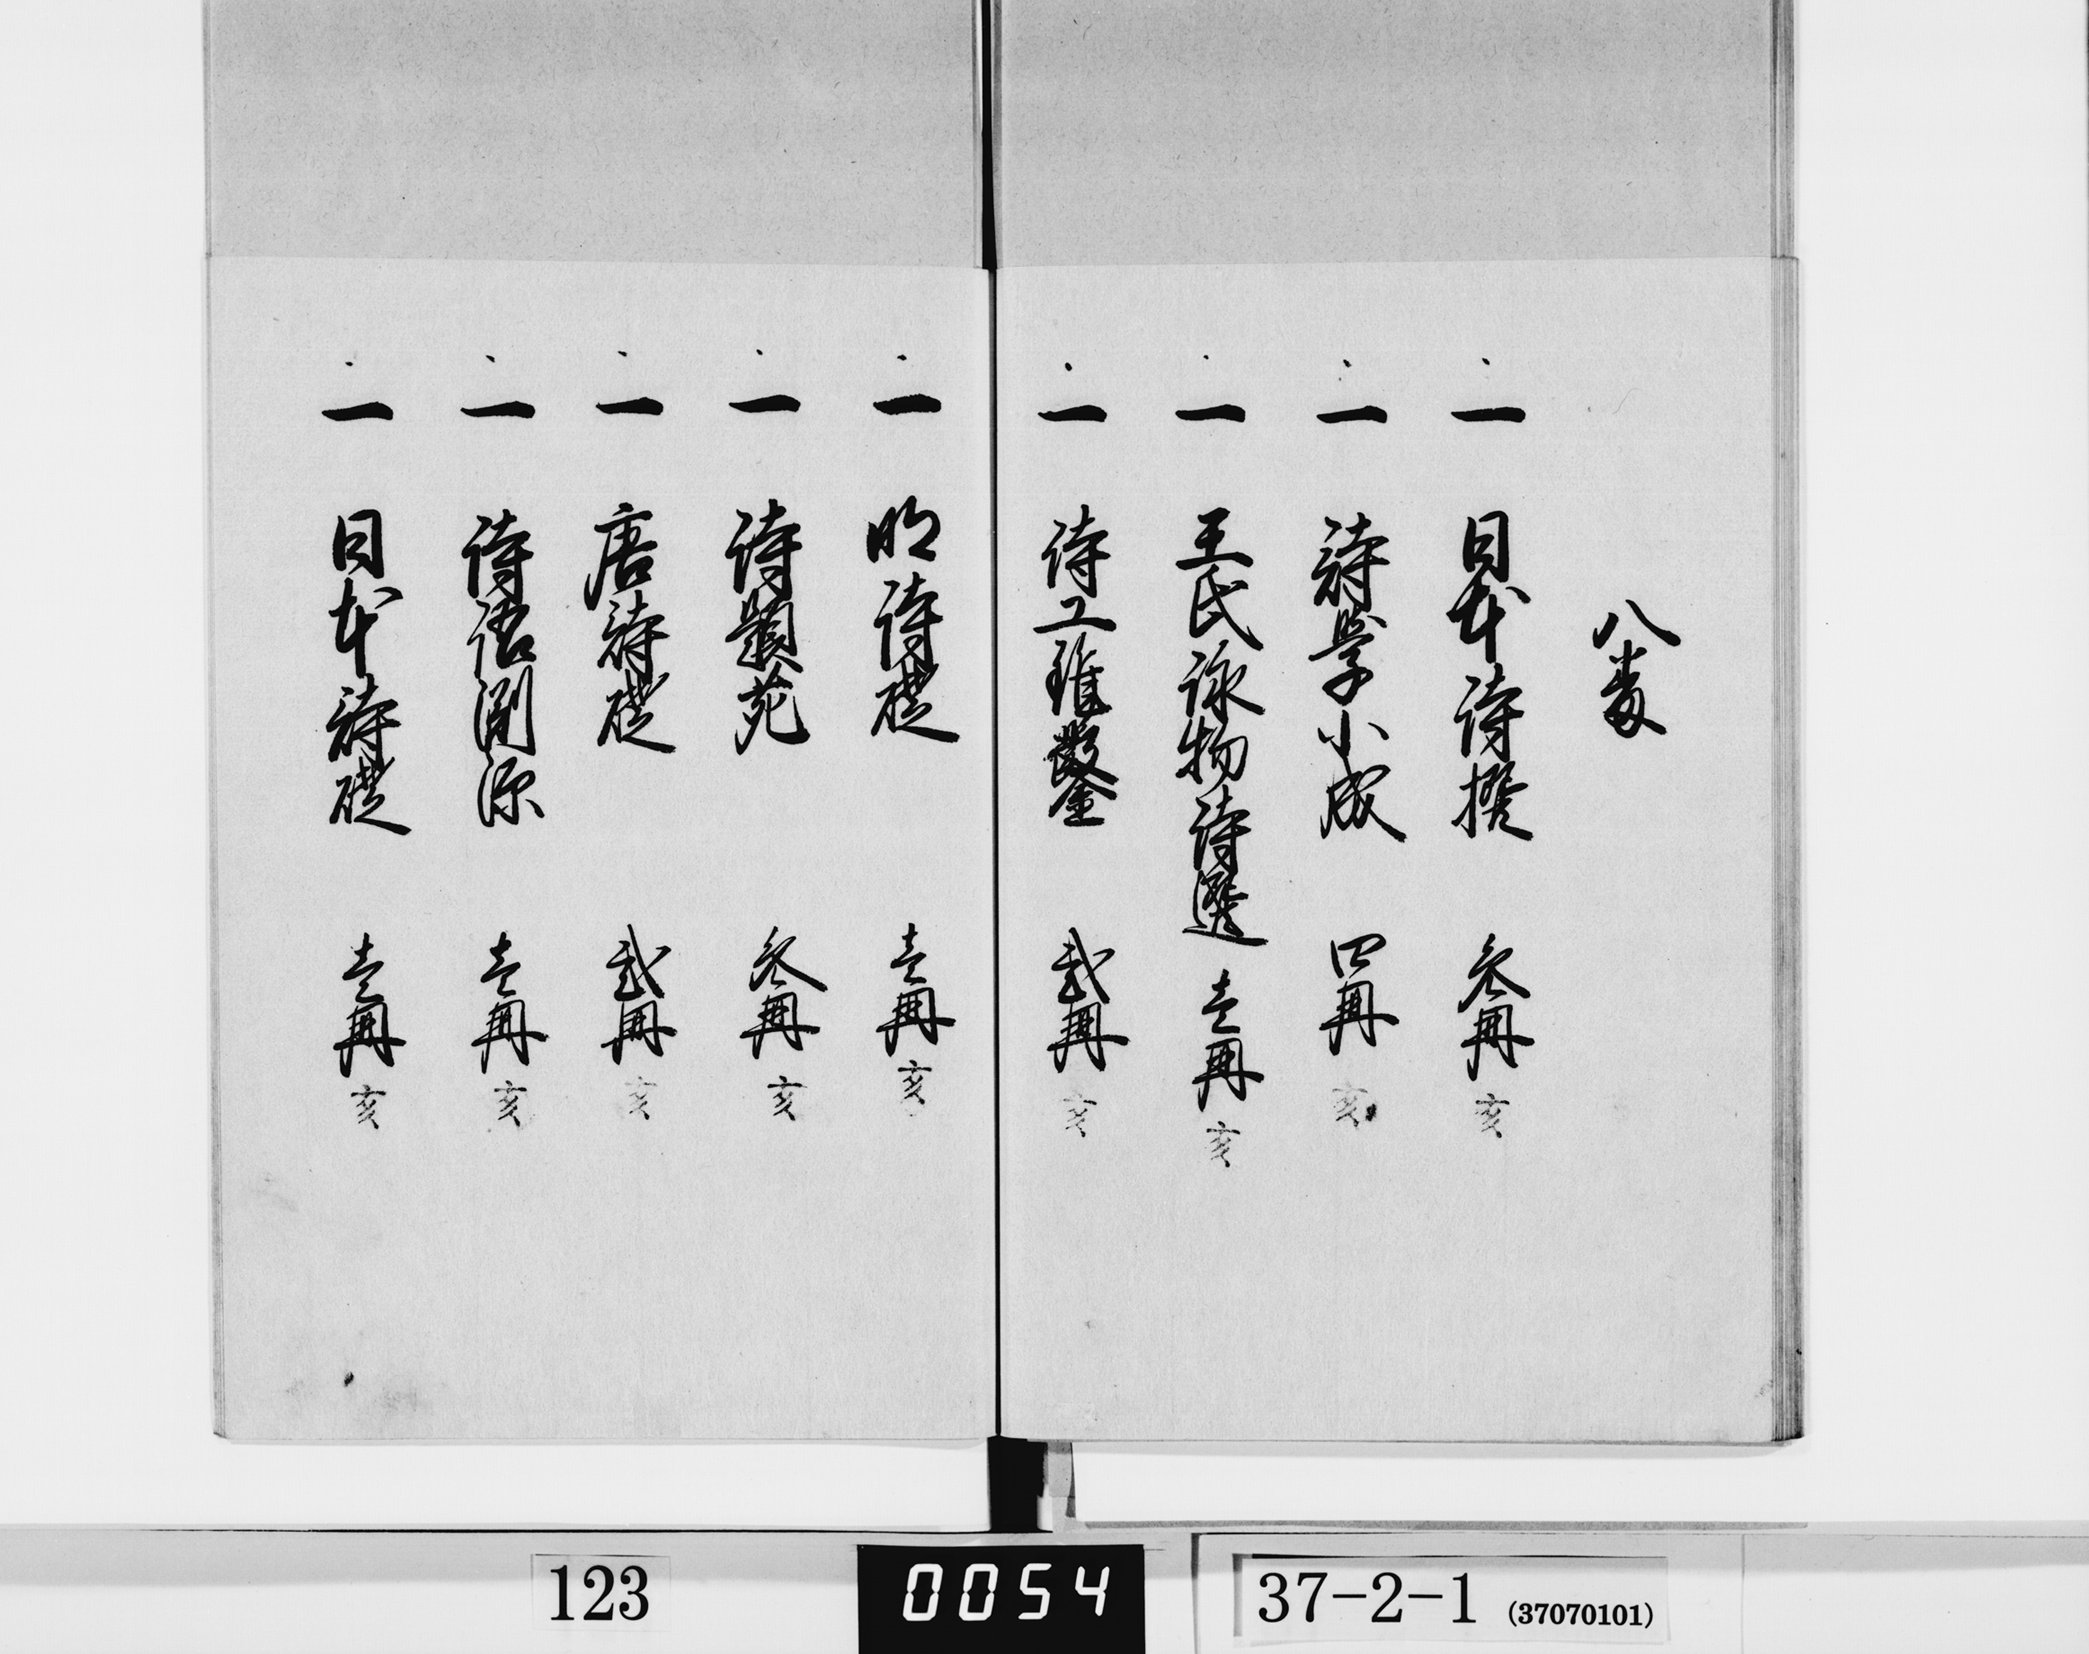 八番
一 日本詩撰 参冊 亥
一 詩学小成 四冊 亥
一 王氏詠物詩選 壱冊 亥
一 詩工錐鑿 弐冊 亥
一 明詩礎 壱冊 亥
一 詩題苑 参冊 亥
一 唐詩礎 弐冊 亥
一 詩語淵源 壱冊 亥
一 日本詩礎 壱冊 亥
123
0054
37-2-1 (37070101)